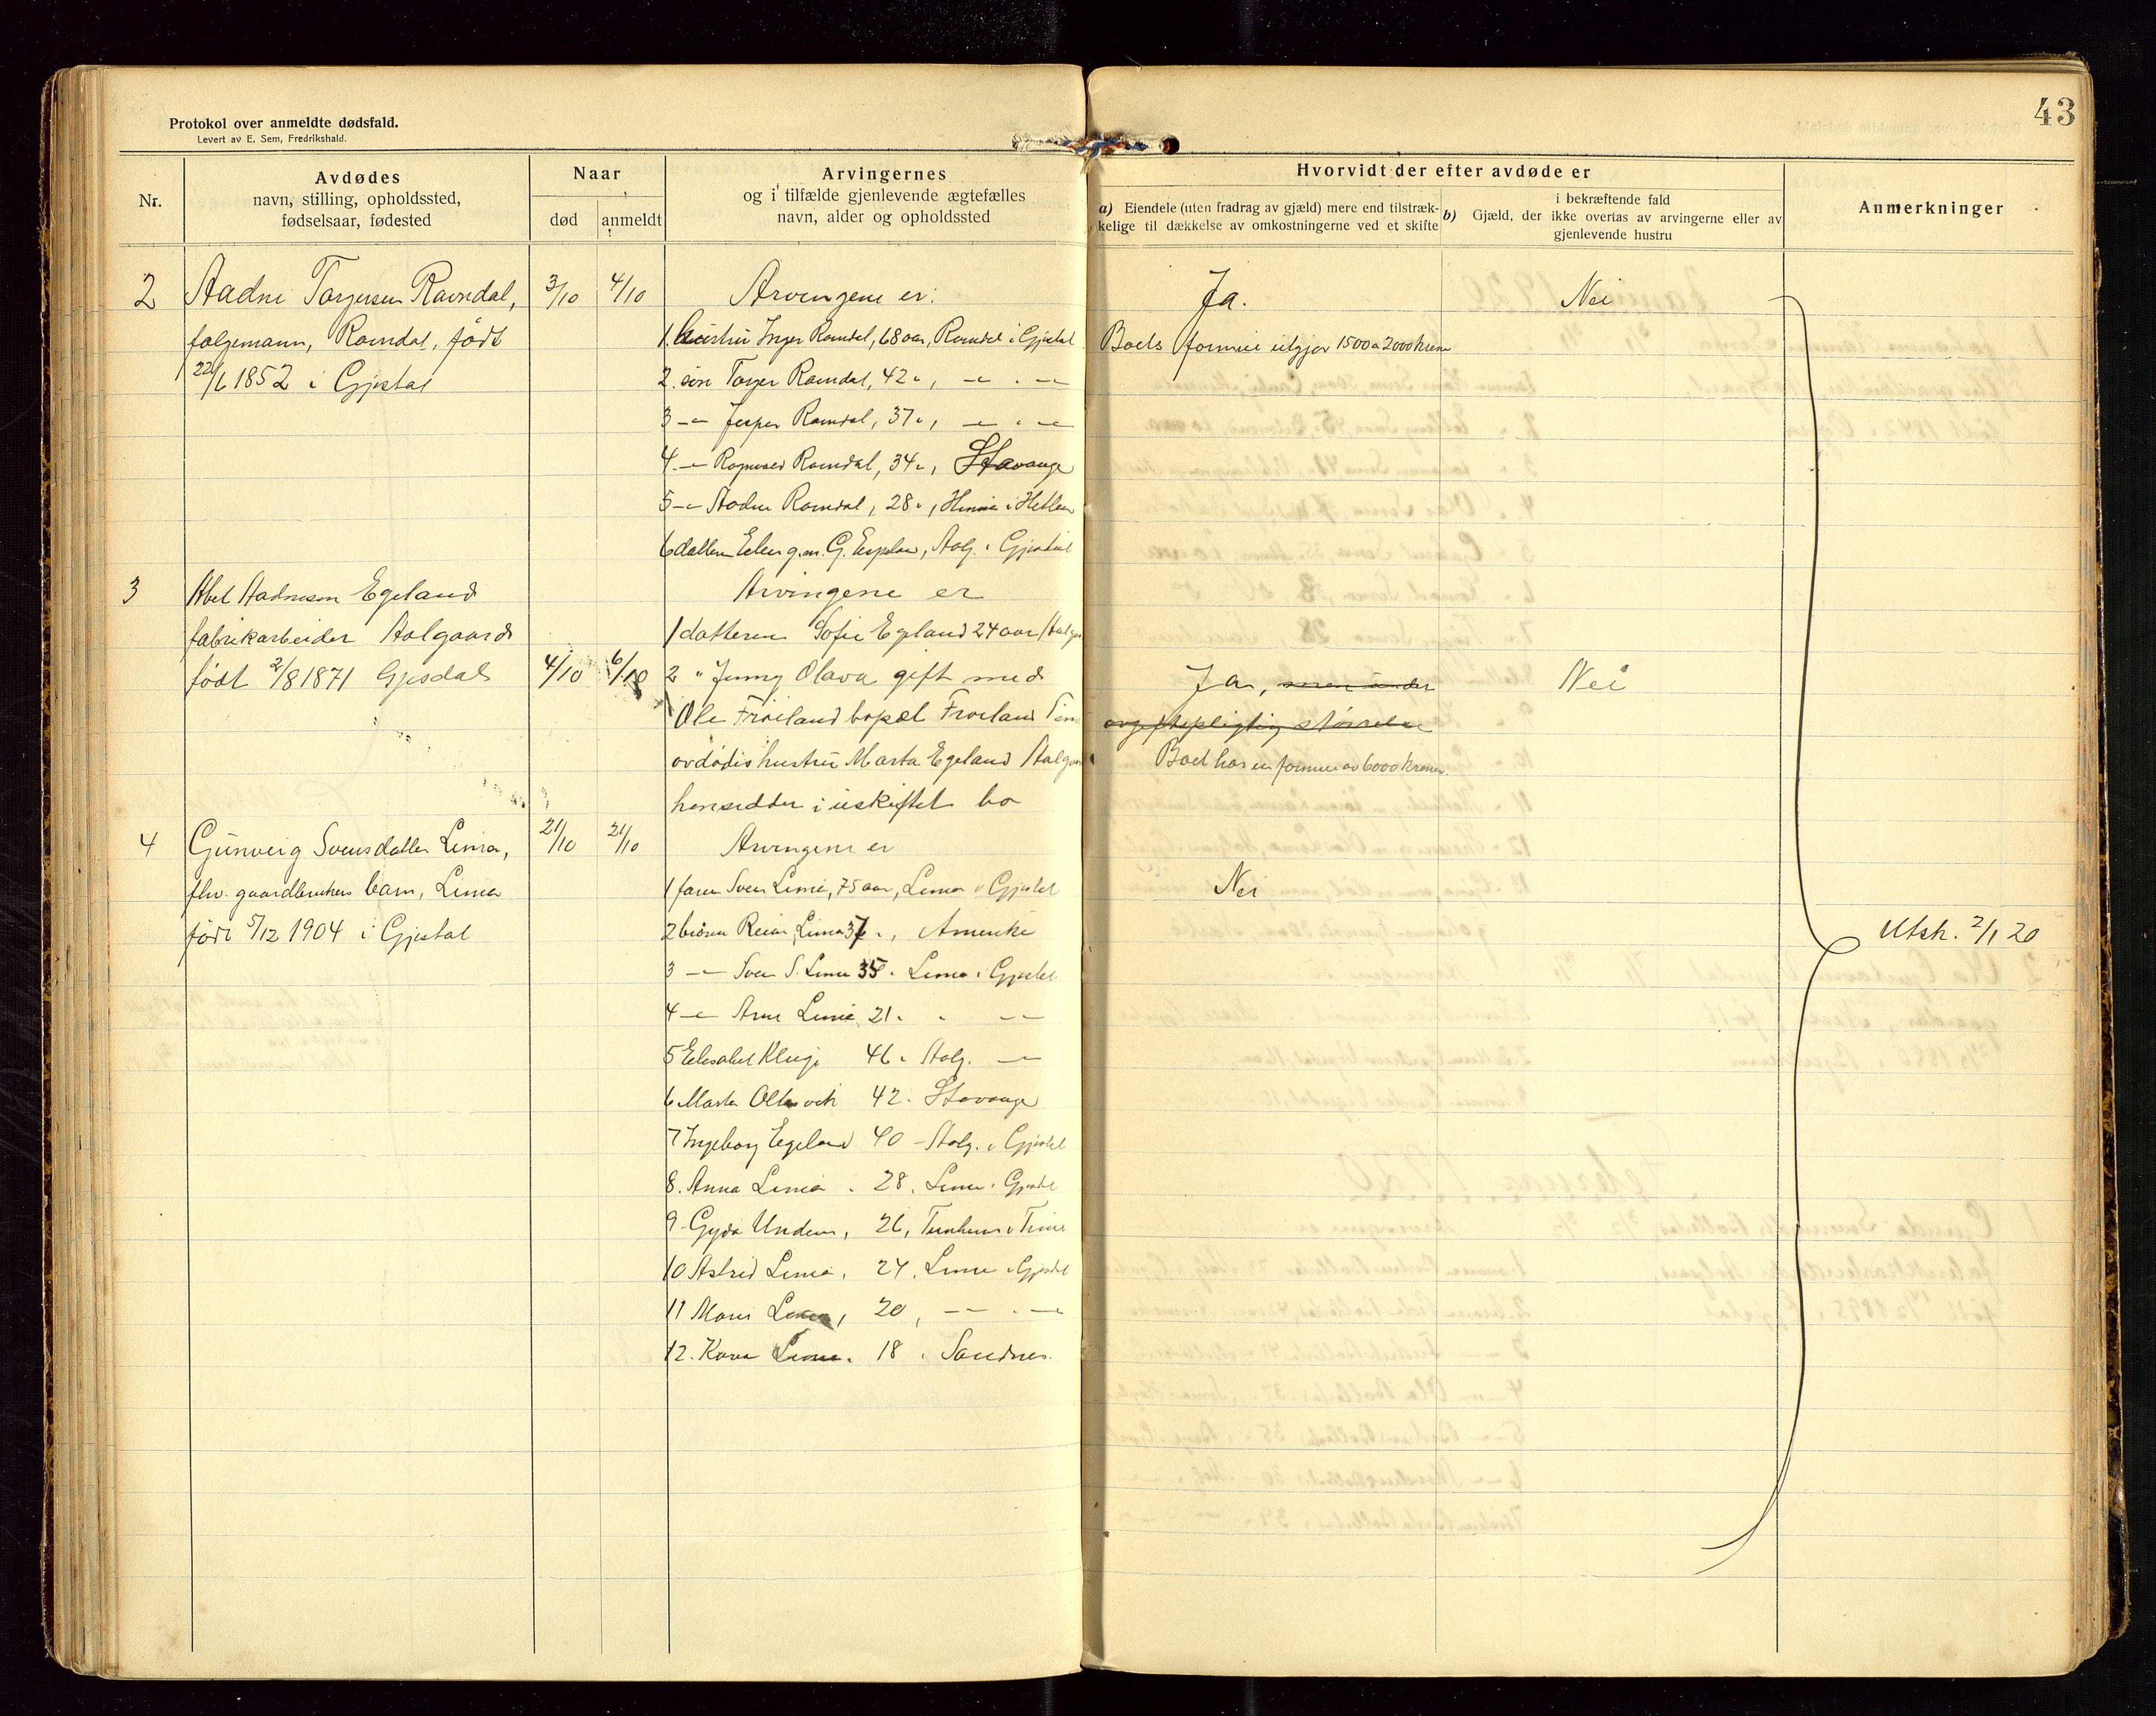 43
Protokol over anmeldte dødsfald.
Levert av E. Sem, Fredrikshald.
Nr.
Avdødes
navn, stilling, opholdssted,
fødselsaar, fødested
Naar
død
anmeldt
Arvingernes
og i tilfælde gjenlevende ægtefælles
navn, alder og opholdssted
Hvorvidt der efter avdøde er
a) Eiendele (uten fradrag av gjæld) mere end tilstræk-
kelige til dækkelse av omkostningerne ved et skifte
b) Gjæld, der i bekræftende fald
ikke overtas av arvingerne eller av
gjenlevende hustru
Anmerkninger
2 Aadne Torgersen Ravndal, 3/10 4/10 Arvingene er: Ja. Nei
folgemann, Ravndal, født 1. hustru Inger Ravndal, 68 aar, Ravndal i Gjestal Boets formue utgjør 1500 a 2000 kroner
22/6 1852 i Gjestal 2. søn Torger Ravndal, 42 ", — " —
3 — Jesper Ravndal, 37 ", — " —
4 — Ragnvald Ravndal, 34 ", Stavanger
5 — Aadne Ravndal, 28 ", Hinna i Hetland
6 datteren Elen g.m. G. Espeland, Aalg. i Gjestal
3 Abel Aadnesen Egeland Arvingene er
fabrikarbeider Aalgaard 1 datteren Sofie Egeland 24 aar Aalg
født 2/8 1871 Gjesdal 4/10 6/10 2 " Jenny Olava gift med Ja, men under Nei
Ole Frøiland bopæl Frøiland Time avgiftspligtig størrelse
avdødes hustru Marta Egeland Aalgaard Boet har en formue av 6000 kroner.
hensidder i uskiftet bo
4 Gunveig Svensdatter Lima, 21/10 21/10 Arvingene er
fhv. gaardbrukers barn, Lima 1 faren Sven Lima, 75 aar, Lima i Gjestal Nei
født 5/12 1904 i Gjestal 2 broren Reier Lima 37 ", Amerika Utsk. 2/1 20
3 — Sven S. Lima 35 " Lima i Gjestal
4 — Arne Lima 21 " " —
5 Elisabet Kluge 46 " Aalg. —
6 Marta Oltedvik 42 " Stavanger
7 Ingeborg Egeland 40 - Aalg. i Gjestal
8. Anna Lima " 28 " Lima i Gjestal
9 - Gyda Undem, 26, Tunheim i Time
10 Astrid Lima, 24, Lima i Gjestal
11 Maren Lima, 20, — " —
12. Kara Lima. 18 " Sandnes.